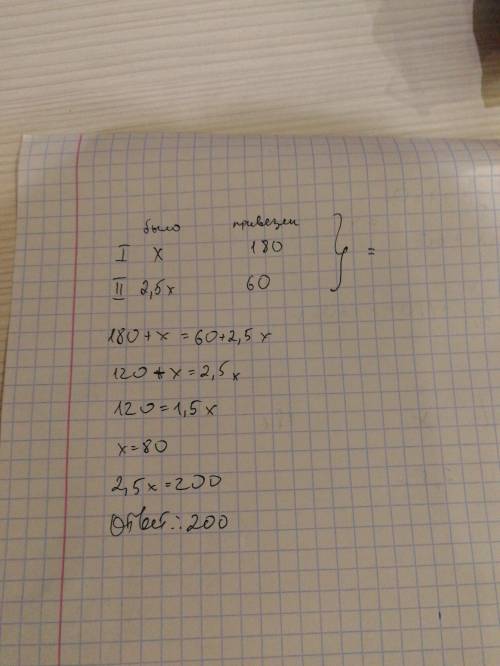 было привезли
I x 180
II 2,5x 60 } =
180+x=60+2,5x
120+x=2,5x
120=1,5x
x=80
2,5x=200
Ответ: 200